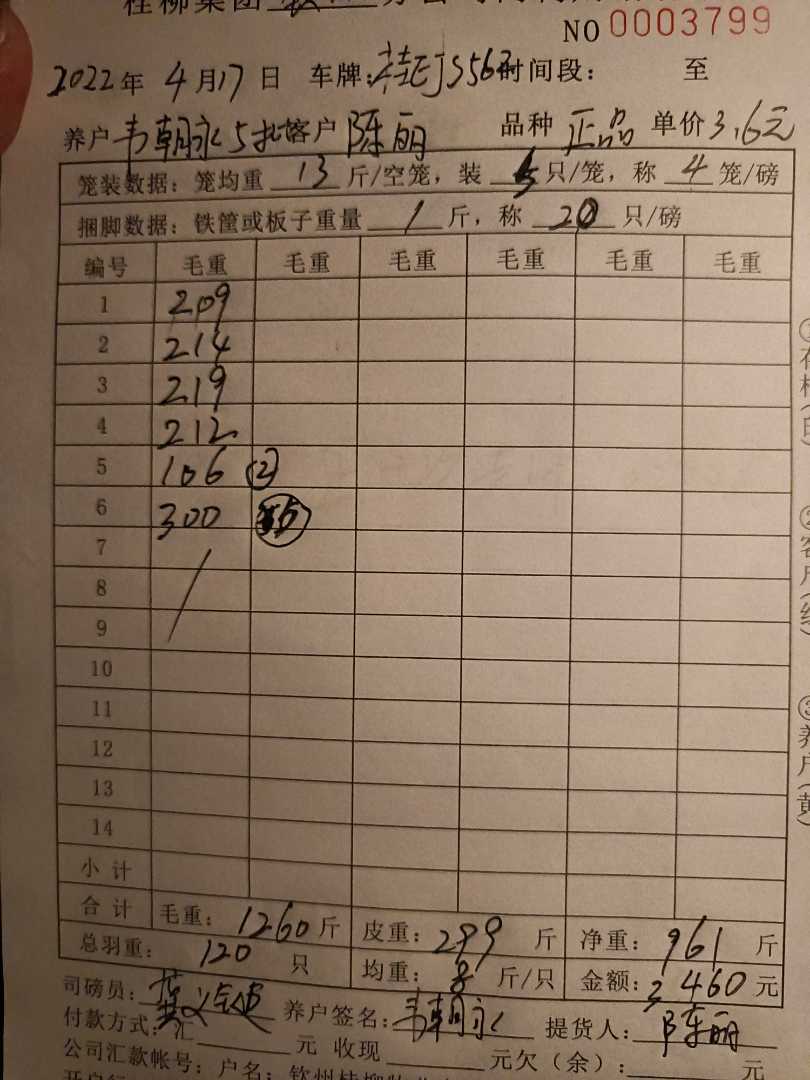 桂柳集团
NO 0003799
2022年 4月17日 车牌:桂EJS567时间段: 至
养户韦朝永5批客户 陈丽 品种 正品 单价3.6元
笼装数据:笼均重 13 斤/空笼,装 5 只/笼,称 4 笼/磅
捆脚数据:铁筐或板子重量 1 斤,称 20 只/磅
编号 毛重 毛重 毛重 毛重 毛重 毛重
1 209
2 214
3 219
4 212
5 106 ②
6 300
7
8
9
10
11
12
13
14
小计
合计 毛重: 1260 斤 皮重: 299 斤 净重: 961 斤
总羽重: 120 只 均重: 8 斤/只 金额: 3460 元
司磅员: 养户签名: 韦朝永 提货人: 陈丽
付款方式:汇 元 收现 元欠(余): 元
公司汇款帐号:户名:钦州桂柳牧业